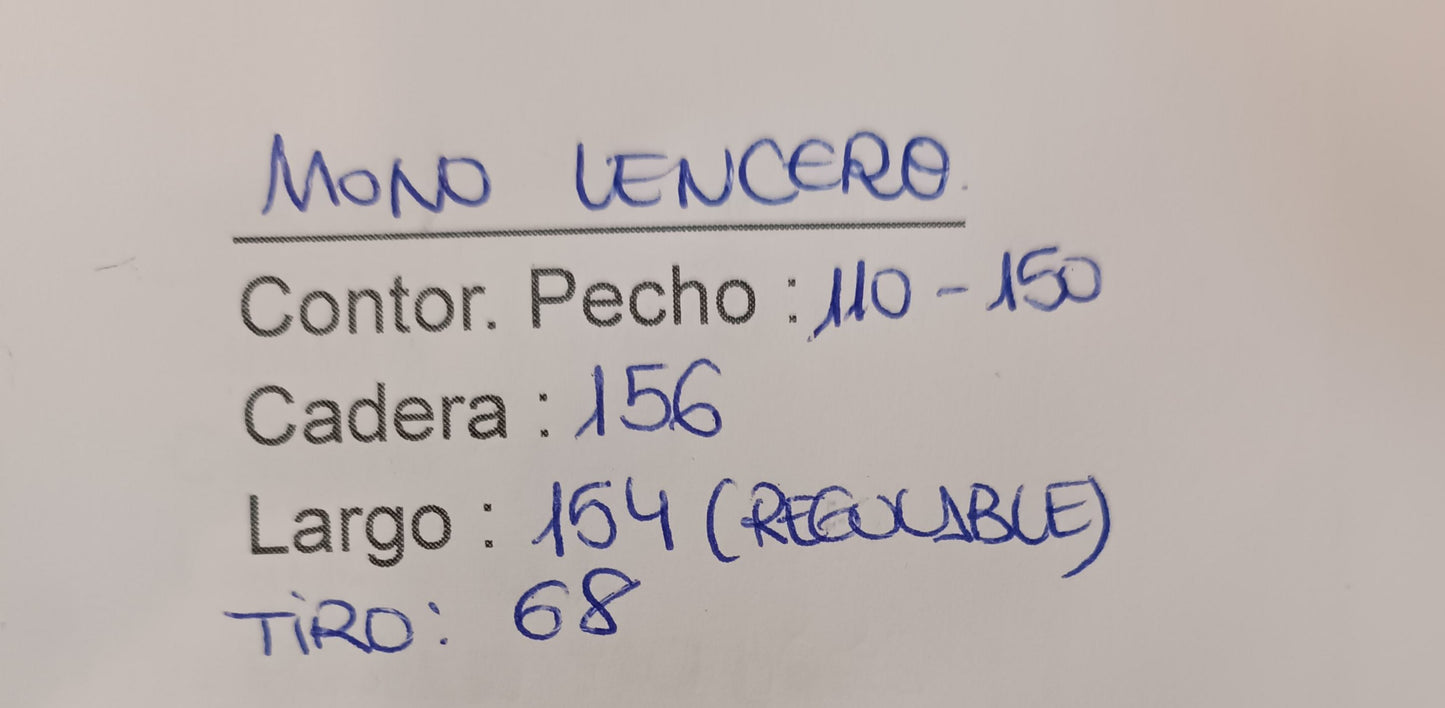 MONO LENCERO
Contor. Pecho : 110 - 150
Cadera : 156
Largo : 154 (REGULABLE)
TIRO: 68